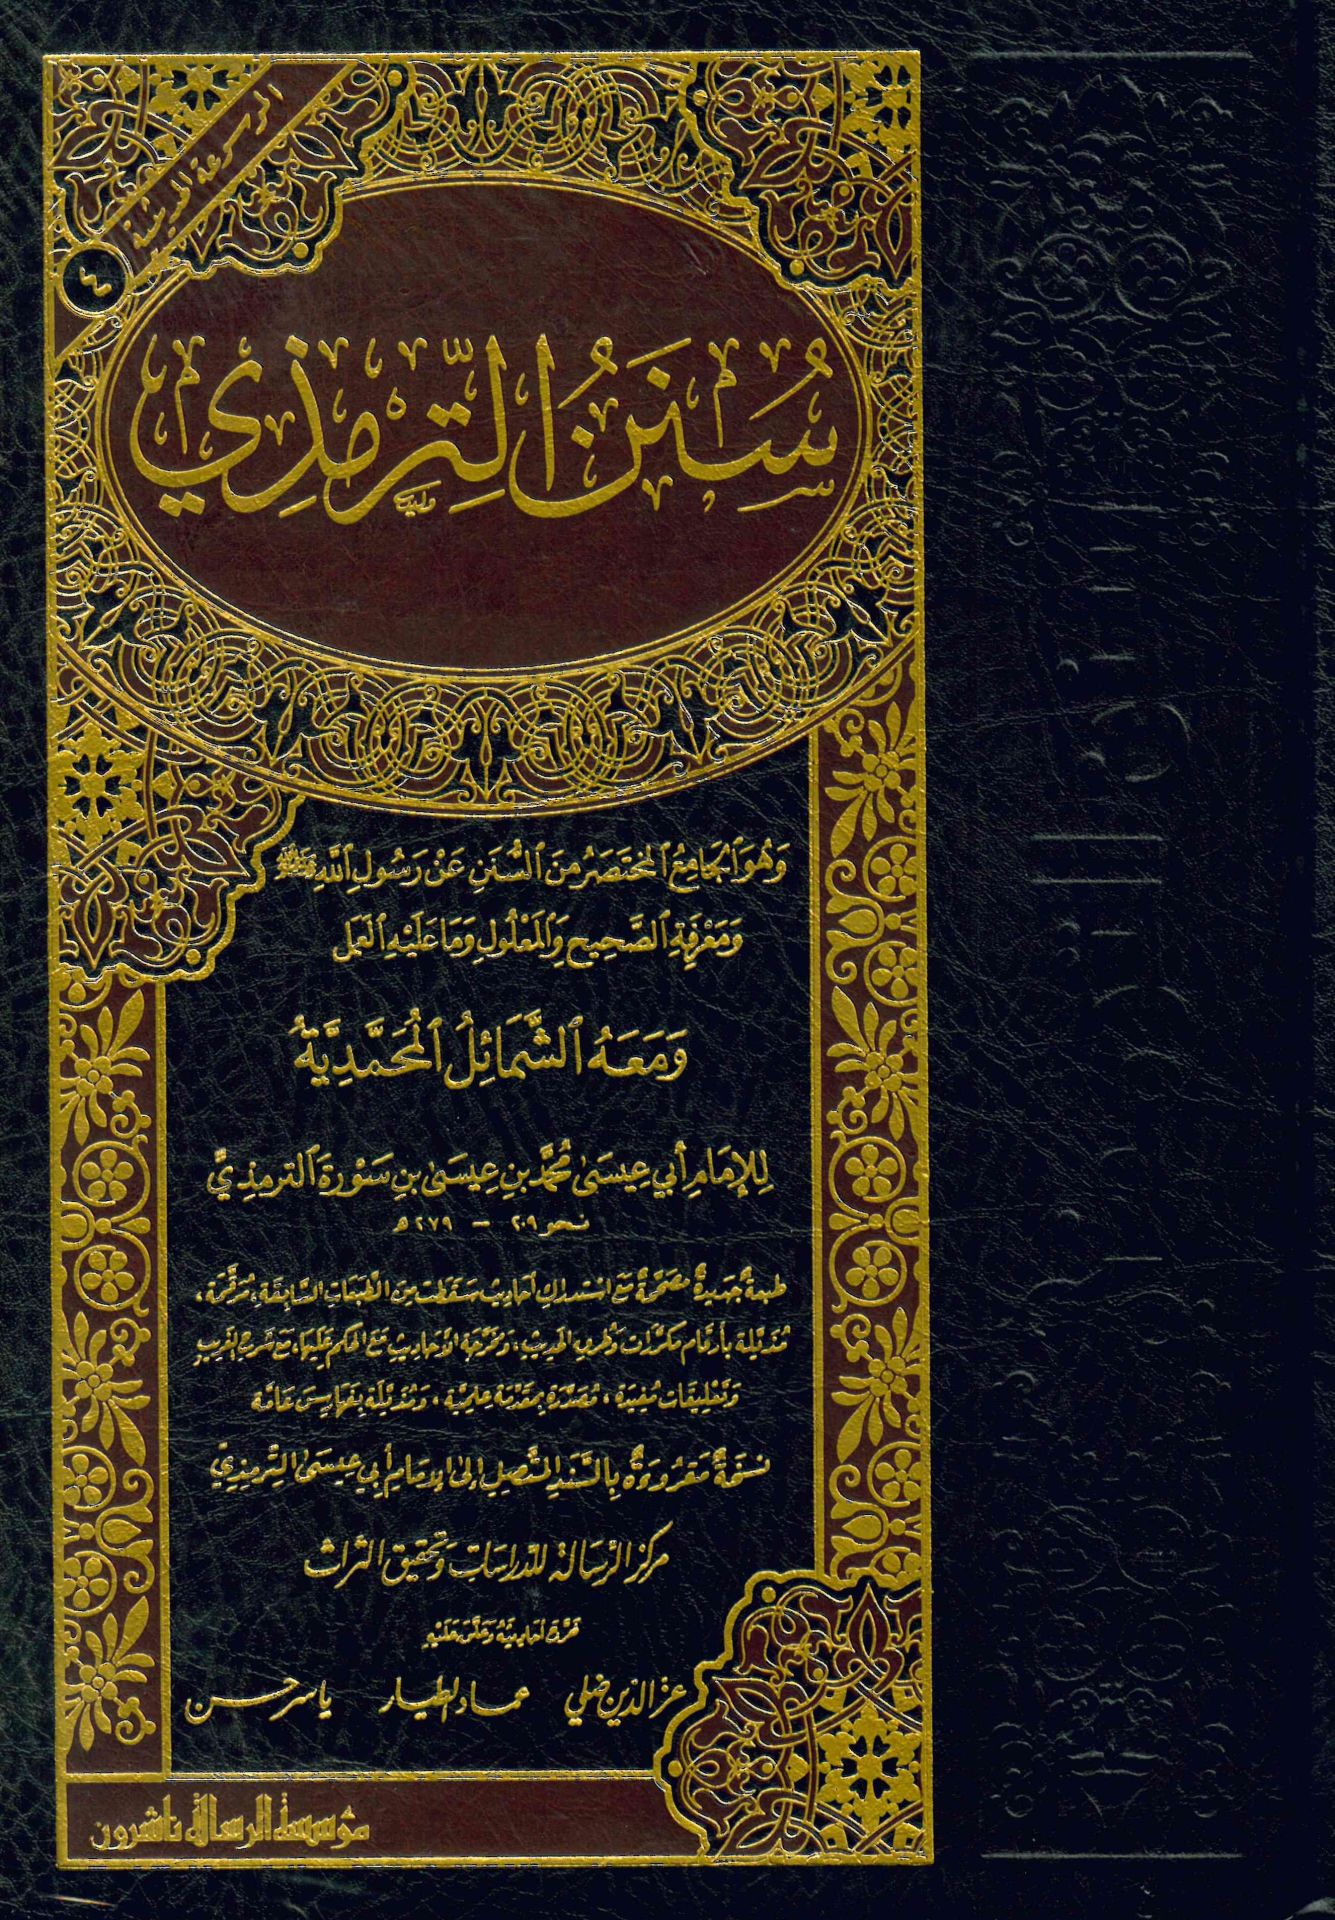 الموسوعة الحديثية
٤
سُنَنُ التِّرمِذِي
وَهُوَ ٱلْجَامِعُ ٱلْمُخْتَصَرُ مِنَ ٱلسُّنَنِ عَنْ رَسُولِ ٱللَّهِ ﷺ
وَمَعْرِفَةِ ٱلصَّحِيحِ وَٱلْمَعْلُولِ وَمَا عَلَيْهِ ٱلْعَمَلُ
وَمَعَهُ ٱلشَّمَائِلُ ٱلْمُحَمَّدِيَّةُ
لِلإِمَامِ أَبِي عِيسَى مُحَمَّدِ بنِ عِيسَى بنِ سَوْرَةَ ٱلترمذِيِّ
نحو ٢٠٩ - ٢٧٩ ه
طبعةٌ جَديدةٌ مصَحَّحةٌ مَعَ استدراكِ أحاديثَ سَقَطَت مِنَ الطَّبَعاتِ السَّابِقَةِ، مُرَقَّمَة،
مُذَيَّلة بأرقام مكرَّرات وَطُرف الحديث، وَمُخَرَّجة الأحاديث مَعَ الحكم عَلَيهَا، مَعَ شَرحِ الغَريبِ
وَتَعْلِيقَات مُفِيدَة، مُصَدَّرَة بِمُقَدِّمَة عِلميَّة، وَمُذَيَّلَة بِفَهَارِسَ عَامَّة
نُسخَةٌ مَقرُوءَةٌ بِالسَّنَدِ المتَّصِلِ إِلى الإِمَامِ أَبِي عِيسَى التِّرمِذِيّ
مركز الرسالة للدراسات وتحقيق التراث
خَرَّجَ أحَاديثَهُ وَعَلَّقَ عَلَيْهِ
عز الدين ضلي عماد الطيار ياسر حسن
مؤسسة الرسالة ناشرون